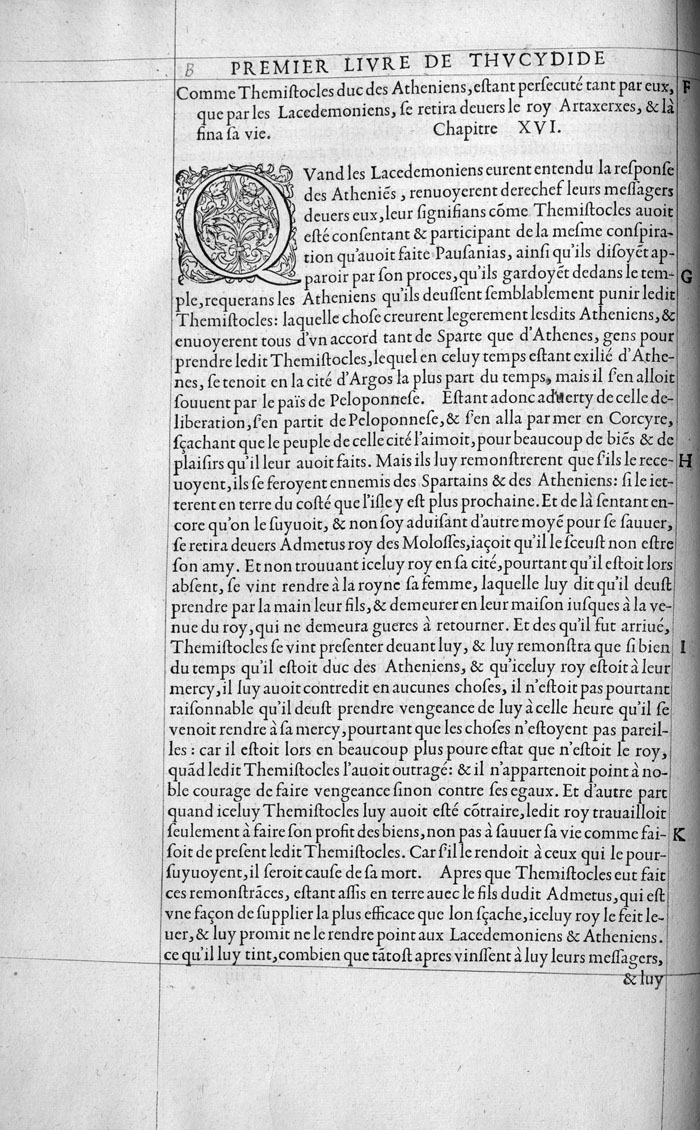 B PREMIER LIVRE DE THVCYDIDE
Comme Themiſtocles duc des Atheniens, eſtant perſecuté tant par eux, F
que par les Lacedemoniens, ſe retira deuers le roy Artaxerxes, & là
fina ſa vie. Chapitre XVI.
QVand les Lacedemoniens eurent entendu la reſponſe
des Atheniẽs, renuoyerent derechef leurs meſſagers
deuers eux, leur ſignifians cõme Themiſtocles auoit
eſté conſentant & participant de la meſme conſpira-
tion qu'auoit faite Pauſanias, ainſi qu'ils diſoyẽt ap-
paroir par ſon proces, qu'ils gardoyẽt dedans le tem- G
ple, requerans les Atheniens qu'ils deuſſent ſemblablement punir ledit
Themiſtocles: laquelle choſe creurent legerement leſdits Atheniens, &
enuoyerent tous d'vn accord tant de Sparte que d'Athenes, gens pour
prendre ledit Themiſtocles, lequel en celuy temps eſtant exilié d'Athe-
nes, ſe tenoit en la cité d'Argos la plus part du temps, mais il ſ'en alloit
ſouuent par le païs de Peloponneſe. Eſtant adonc aduerty de celle de-
liberation, ſ'en partit de Peloponneſe, & ſ'en alla par mer en Corcyre,
ſçachant que le peuple de celle cité l'aimoit, pour beaucoup de biẽs & de
plaiſirs qu'il leur auoit faits. Mais ils luy remonſtrerent que ſ'ils le rece- H
uoyent, ils ſe feroyent ennemis des Spartains & des Atheniens: ſi le iet-
terent en terre du coſté que l'iſle y eſt plus prochaine. Et de là ſentant en-
core qu'on le ſuyuoit, & non ſoy aduiſant d'autre moyẽ pour ſe ſauuer,
ſe retira deuers Admetus roy des Moloſſes, iaçoit qu'il le ſceuſt non eſtre
ſon amy. Et non trouuant iceluy roy en ſa cité, pourtant qu'il eſtoit lors
abſent, ſe vint rendre à la royne ſa femme, laquelle luy dit qu'il deuſt
prendre par la main leur fils, & demeurer en leur maiſon iuſques à la ve-
nue du roy, qui ne demeura gueres à retourner. Et des qu'il fut arriué,
Themiſtocles ſe vint preſenter deuant luy, & luy remonſtra que ſi bien I
du temps qu'il eſtoit duc des Atheniens, & qu'iceluy roy eſtoit à leur
mercy, il luy auoit contredit en aucunes choſes, il n'eſtoit pas pourtant
raiſonnable qu'il deuſt prendre vengeance de luy à celle heure qu'il ſe
venoit rendre à ſa mercy, pourtant que les choſes n'eſtoyent pas pareil-
les : car il eſtoit lors en beaucoup plus poure eſtat que n'eſtoit le roy,
quãd ledit Themiſtocles l'auoit outragé: & il n'appartenoit point à no-
ble courage de faire vengeance ſinon contre ſes egaux. Et d'autre part
quand iceluy Themiſtocles luy auoit eſté cõtraire, ledit roy trauailloit
ſeulement à faire ſon profit des biens, non pas à ſauuer ſa vie comme fai- K
ſoit de preſent ledit Themiſtocles. Car ſ'il le rendoit à ceux qui le pour-
ſuyuoyent, il ſeroit cauſe de ſa mort. Apres que Themiſtocles eut fait
ces remonſtrãces, eſtant aſſis en terre auec le fils dudit Admetus, qui eſt
vne façon de ſupplier la plus efficace que lon ſçache, iceluy roy le feit le-
uer, & luy promit ne le rendre point aux Lacedemoniens & Atheniens.
ce qu'il luy tint, combien que tãtoſt apres vinſſent à luy leurs meſſagers,
& luy